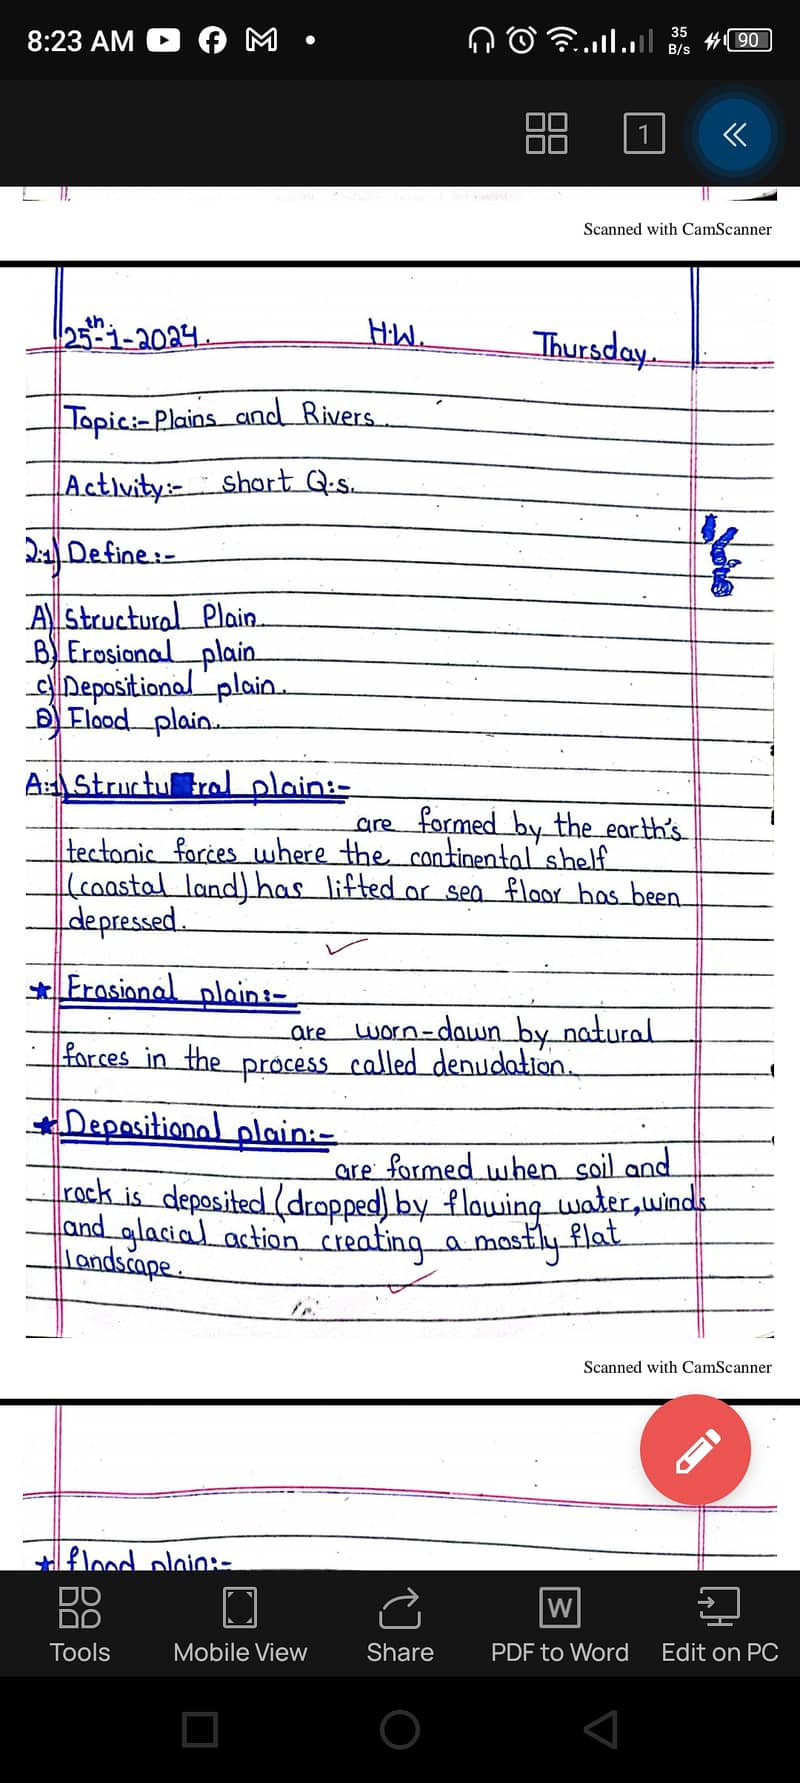 8:23 AM
35
B/s
90
1
Scanned with CamScanner
25th-1-2024. H.W. Thursday.
Topic:- Plains and Rivers.
Activity:- short Q.s.
Q:1) Define:-
A) Structural Plain.
B) Erosional plain
C) Depositional plain.
D) Flood plain.
A:1) Structural plain:-
are formed by the earth's
tectonic forces where the continental shelf
(coastal land) has lifted or sea floor has been
depressed.
★ Erosional plain:-
are worn-down by natural
forces in the process called denudation.
★ Depositional plain:-
are formed when soil and
rock is deposited (dropped) by flowing water, winds
and glacial action creating a mostly flat
landscape.
Scanned with CamScanner
★ flood plain:-
Tools
Mobile View
Share
W
PDF to Word
Edit on PC